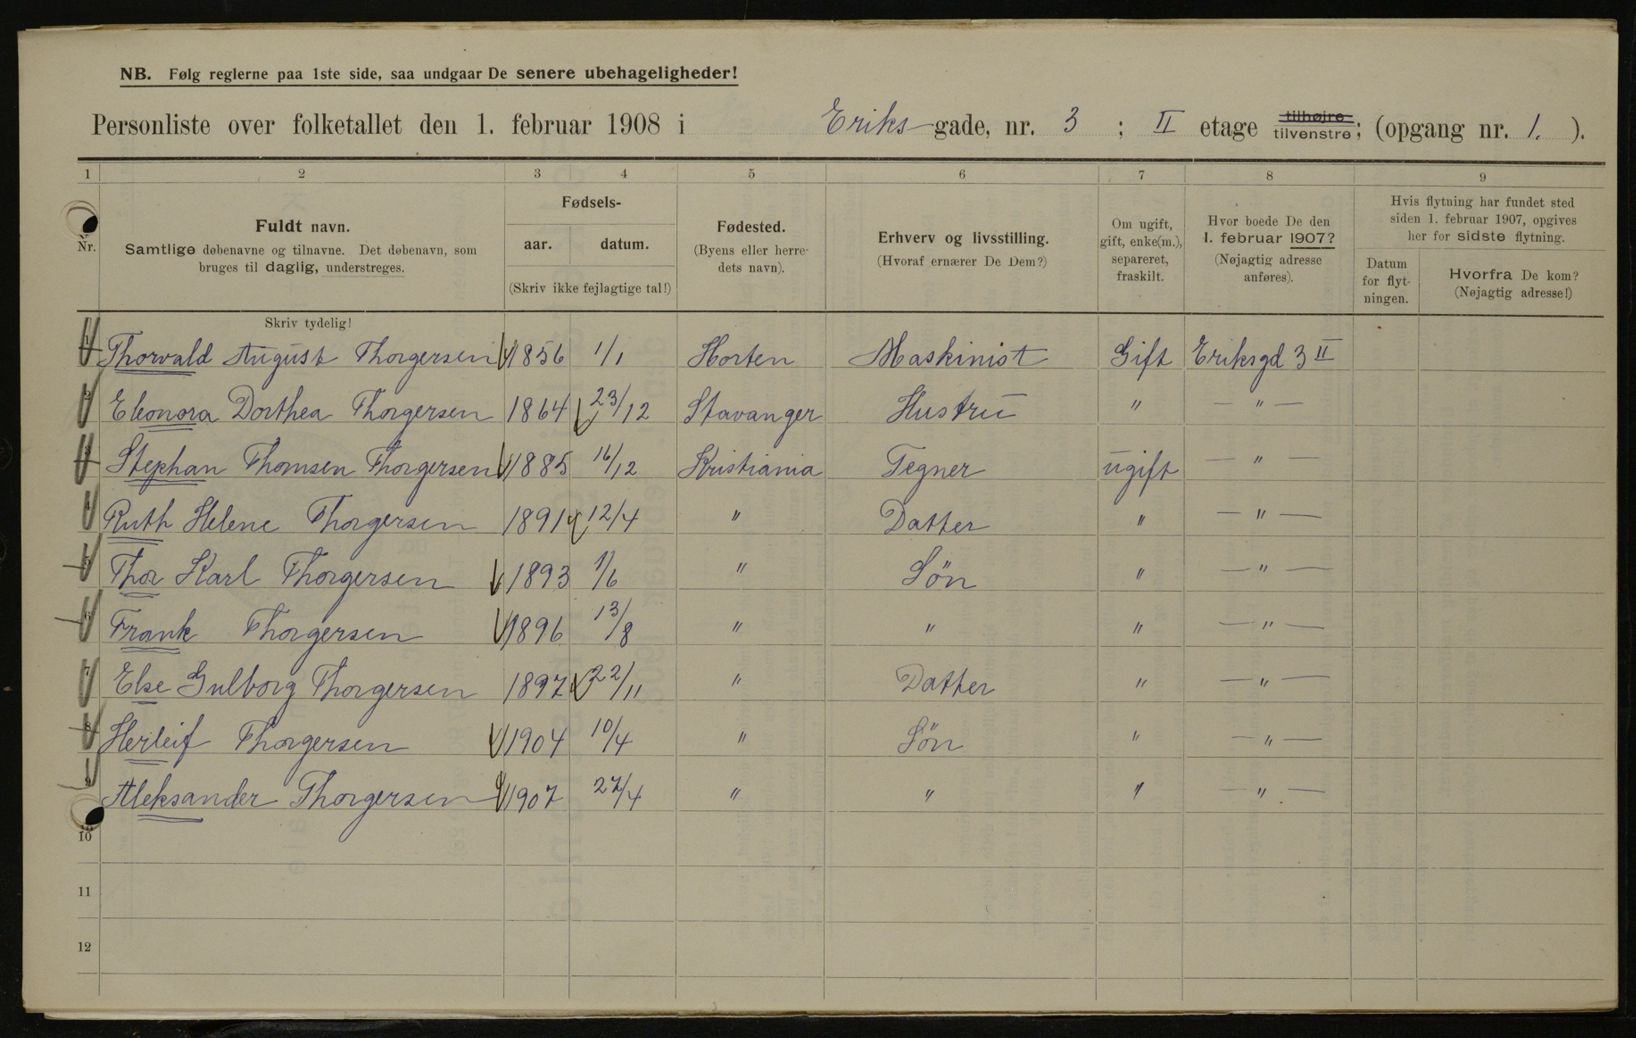 NB. Følg reglerne paa 1ste side, saa undgaar De senere ubehageligheder!
Personliste over folketallet den 1. februar 1908 i Eriks gade, nr. 3 ; II etage tilhøjre tilvenstre; (opgang nr. 1. ).
1 2 3 4 5 6 7 8 9
Nr.
Fuldt navn.
Samtlige døbenavne og tilnavne. Det døbenavn, som
bruges til daglig, understreges.
Fødsels-
aar. datum.
(Skriv ikke fejlagtige tal!)
Fødested.
(Byens eller herre-
dets navn).
Erhverv og livsstilling.
(Hvoraf ernærer De Dem?)
Om ugift,
gift, enke(m.),
separeret,
fraskilt.
Hvor boede De den
1. februar 1907?
(Nøjagtig adresse
anføres).
Hvis flytning har fundet sted
siden 1. februar 1907, opgives
her for sidste flytning.
Datum
for flyt-
ningen.
Hvorfra De kom?
(Nøjagtig adresse!)
Skriv tydelig!
1 Thorvald August Thorgersen 1856 1/1 Horten Maskinist Gift Eriksgd 3 II
2 Eleonora Dorthea Thorgersen 1864 23/12 Stavanger Hustru " — " —
3 Stephan Thomsen Thorgersen 1885 16/12 Kristiania Tegner ugift — " —
4 Ruth Helene Thorgersen 1891 12/4 " Datter " — " —
5 Thor Karl Thorgersen 1893 1/6 " Søn " — " —
6 Frank Thorgersen 1896 13/8 " " " — " —
7 Else Gulborg Thorgersen 1897 22/11 " Datter " — " —
8 Herleif Thorgersen 1904 10/4 " Søn " — " —
9 Aleksander Thorgersen 1907 27/4 " " " — " —
10
11
12